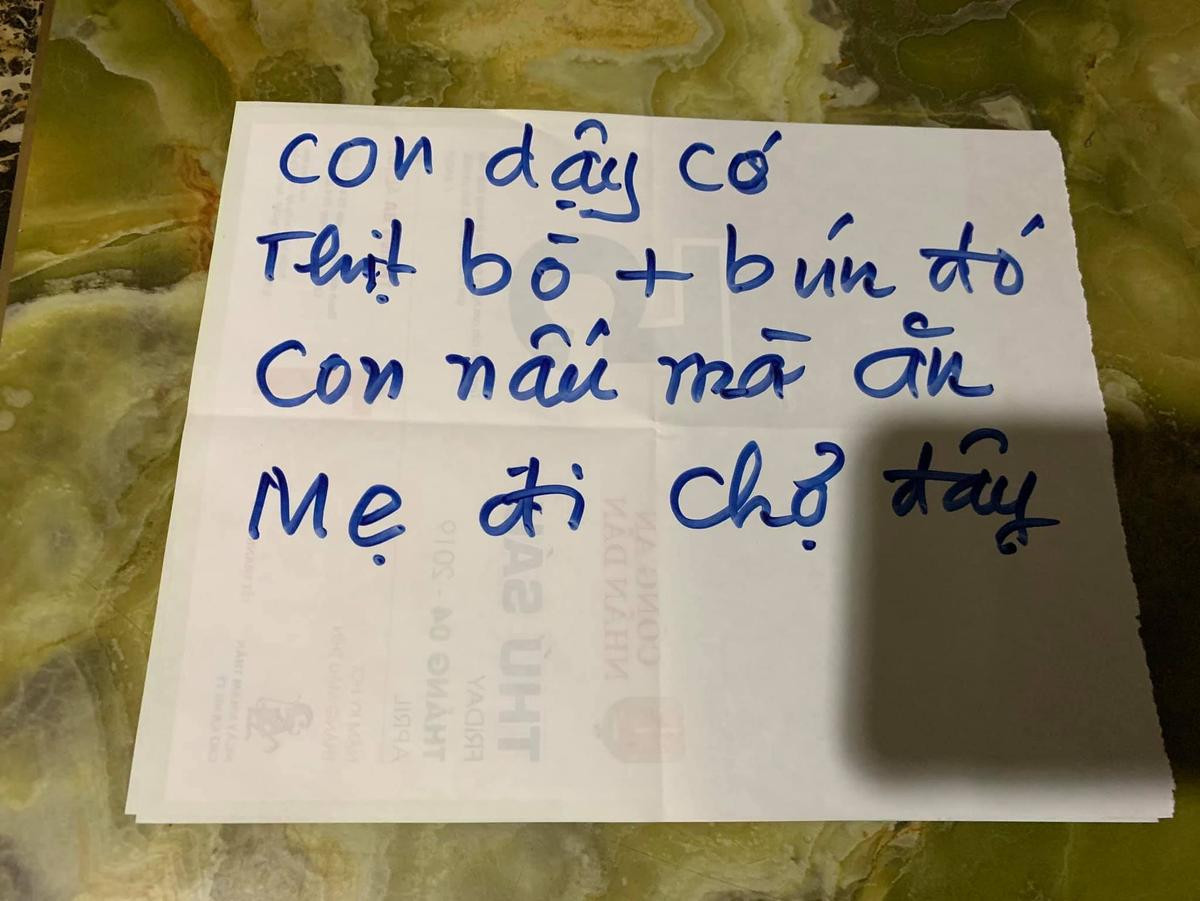 con dậy có
Thịt bò + bún đó
Con nấu mà ăn
Mẹ đi chợ đây
THỨ SÁU
FRIDAY
THÁNG 04 - 2019
APRIL
NHÂN DÂN
CÔNG AN